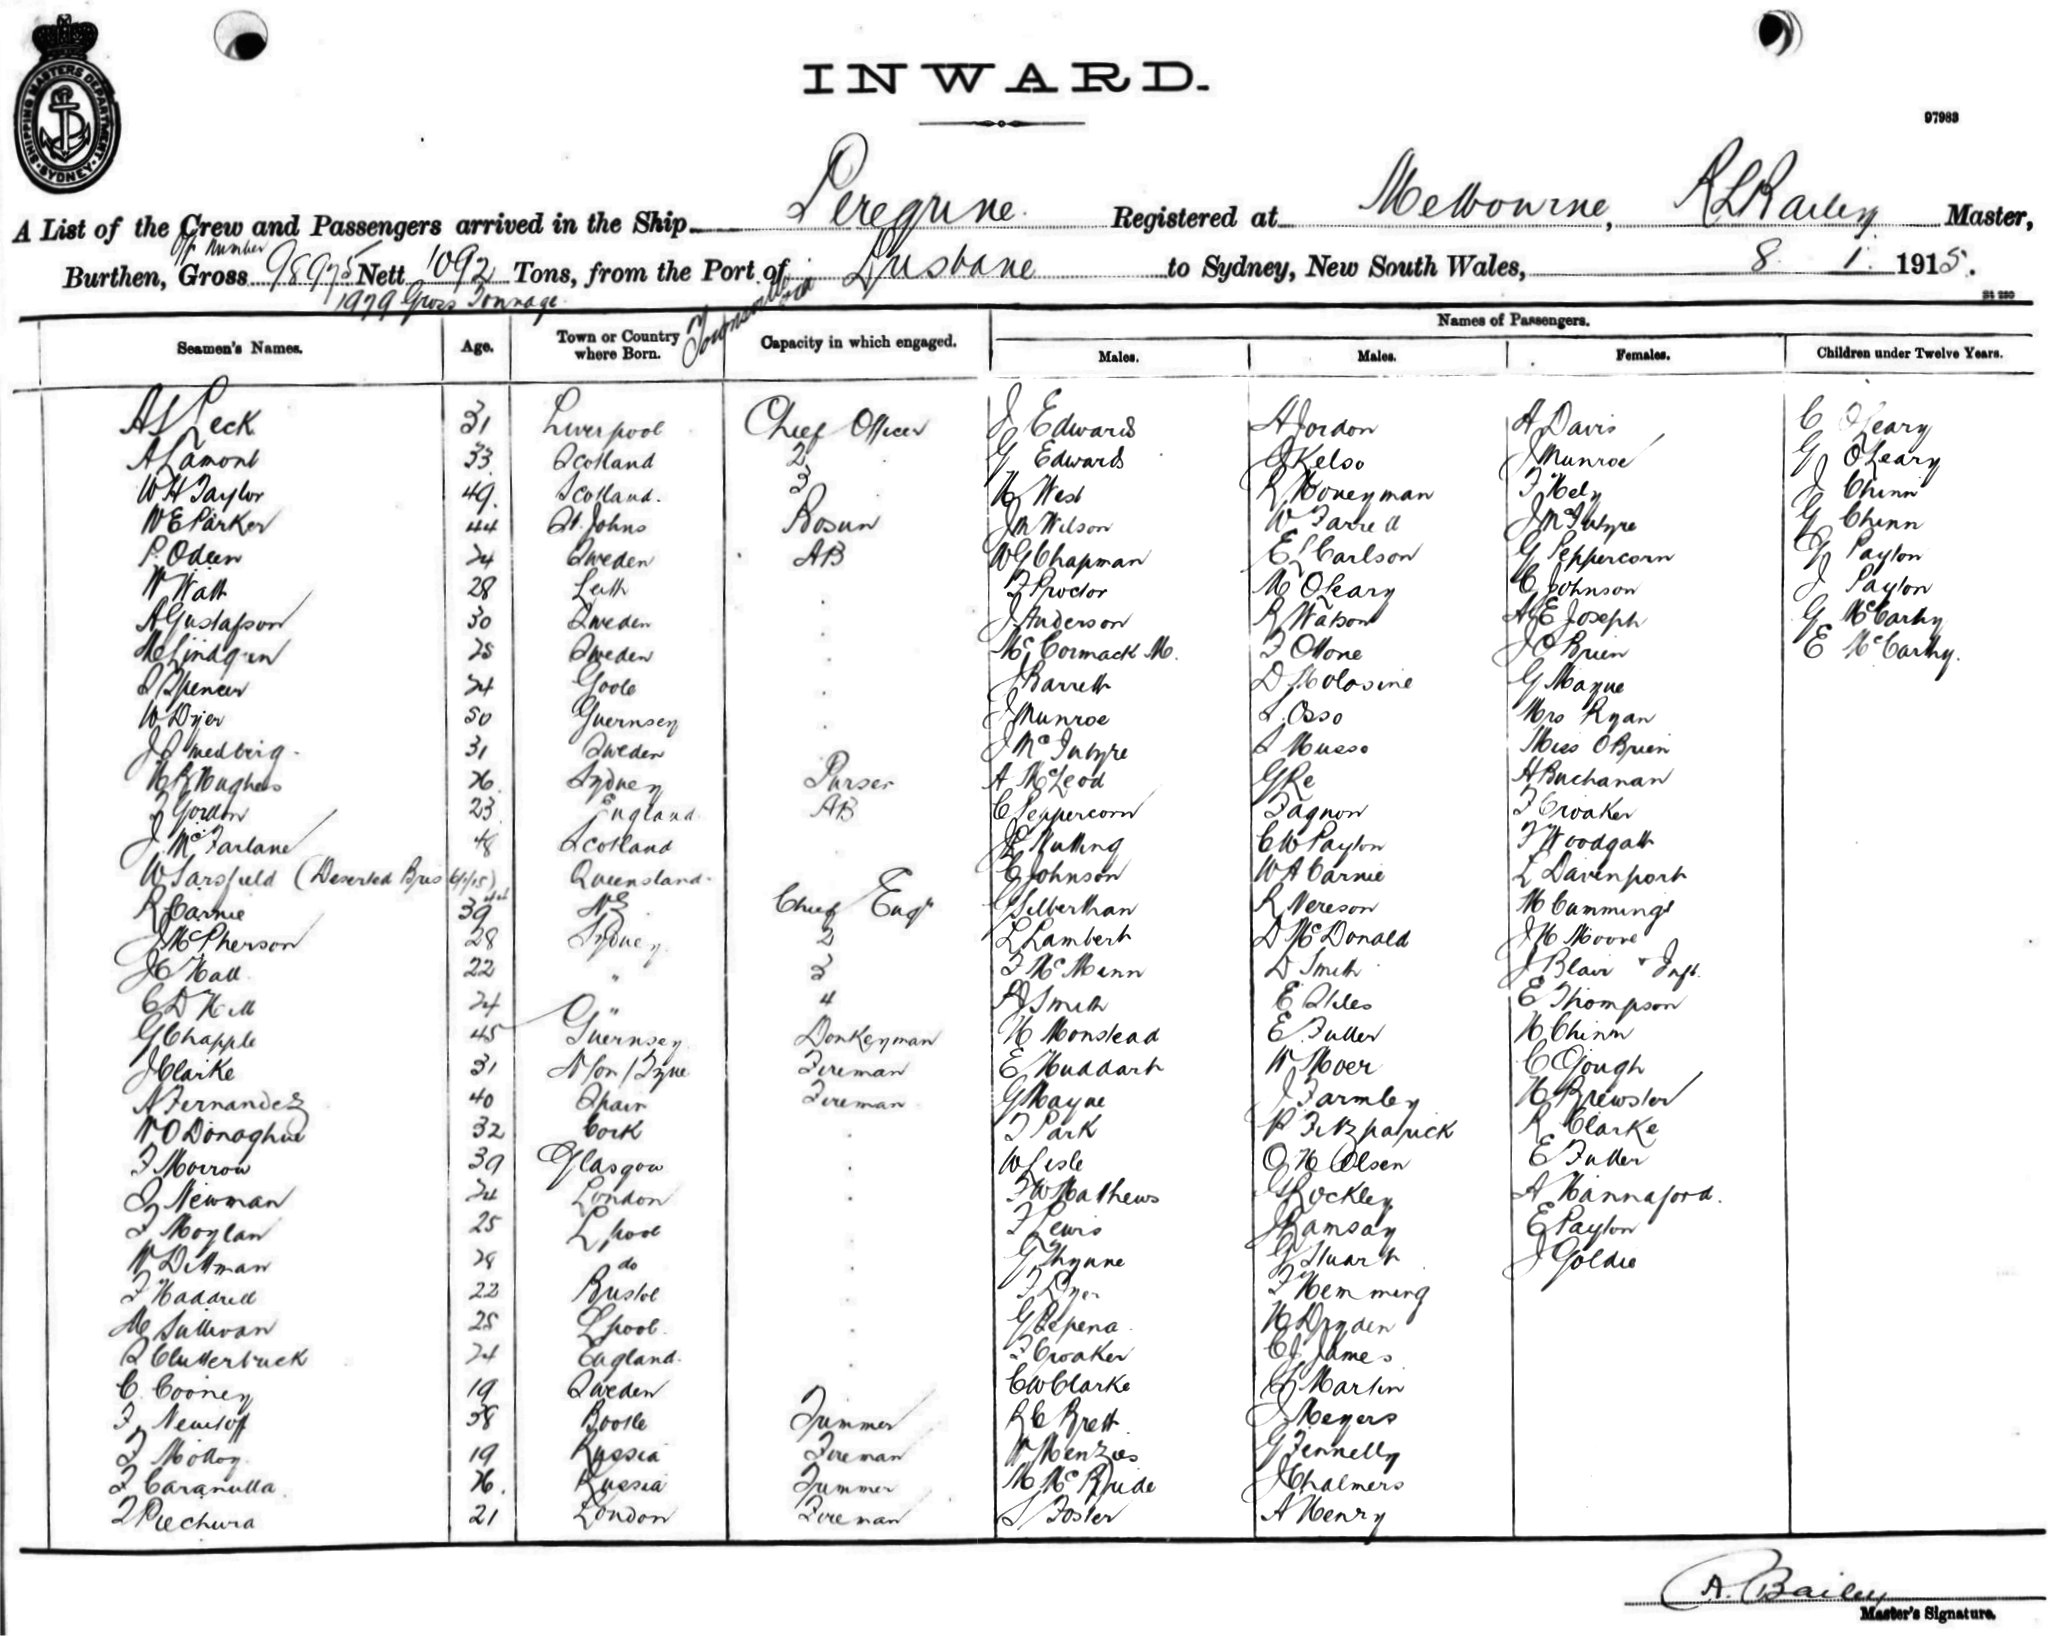 INWARD.
SHIPPING MASTERS DEPARTMENT. SYDNEY
97983
A List of the Crew and Passengers arrived in the Ship Peregrine. Registered at Melbourne, R L Bailey Master,
Off Number
Burthen, Gross 98975 Nett 1092 Tons, from the Port of Brisbane to Sydney, New South Wales, 8 1 1915.
1979 Gross Tonnage.
Townsville via
St 250
Names of Passengers.
Seamen's Names. Age. Town or Country where Born. Capacity in which engaged. Males. Males. Females. Children under Twelve Years.
A L Leck 31 Liverpool Chief Officer J Edwards A Jordon A Davis C O'Leary
A Lamont 33 Scotland 2 G Edwards J Kelso J Munroe G O'Leary
W H Taylor 49. Scotland. 3 H West R Honeyman F Hely J Chinn
W E Parker 44 St. Johns Bosun J M Wilson W Farrell J McIntyre G Chinn
P. Odeen 24 Sweden AB W G Chapman E Carlson G Peppercorn G Payton
W Watt 28 Leith F Proctor M O'Leary C Johnson J Payton
A Gustafson 30 Sweden J Anderson R Watson A E Joseph G McCarthy
M Lindgren 25 Sweden McCormack M. F Ottone J O'Brien E McCarthy.
S Spencer 24 Goole J Barrett D Molosine G Mayne
W Dyer 50 Guernsey J Munroe S. Osso Mrs Ryan
J Smedberg 31 Sweden J McIntyre S Musso Miss O'Brien
H R Hughes 26. Sydney Purser A McLeod G Re A Buchanan
F Gordon 23 England. AB C Peppercorn Fagnon F Croaker
J. McFarlane 48 Scotland J Nutting C W Payton F Woodgate
W Sarsfield (Deserted Bris 6/1/15) Queensland. C Johnson W A Carnie L Davenport
R Carnie 39 NZ Chief Engr G Silberthan R Nereson M Cummings
J McPherson 28 Sydney 2 L Lambert D McDonald J H Moore
J C Hall 22 " 3 F McMinn D Smith J Blair & Inft.
C D Hill 24 " 4 A Smith E Stiles E Thompson
G Chapple 45 Guernsey Donkeyman H Monstead E Fuller H Chinn
J Clarke 31 N/on/Tyne Fireman E Huddart W Moer C Gough
A Fernandez 40 Spain Fireman G Mayne J Farmley H Brewster
W O'Donaghue 32 Cork F Park P Fitzpatrick R Clarke
F Morrow 39 Glasgow W Lisle O H Olsen E Fuller
J Newman 24 London F W Mathews G Lockley A Hannaford.
F Moylan 25 L'pool F Lewis J Ramsay E Payton
W Dittman 28 do G Thynne G Stuart J Goldie
F Haddrell 22 Bristol F Hemming
M Sullivan 25 L'pool. G Pepena H Dryden
S Clutterbuck 24 England. F Croaker C J James
C. Cooney 19 Sweden C W Clarke G Martin
F. 38 Bootle Trimmer R C Brett J Meyers
F Molloy 19 Russia Fireman W Menzies G Fennelly
F Caranulla 26. Russia Trimmer M McBride J Chalmers
J Piechura 21 London Fireman S Foster A Henry
A. Bailey
Master's Signature.